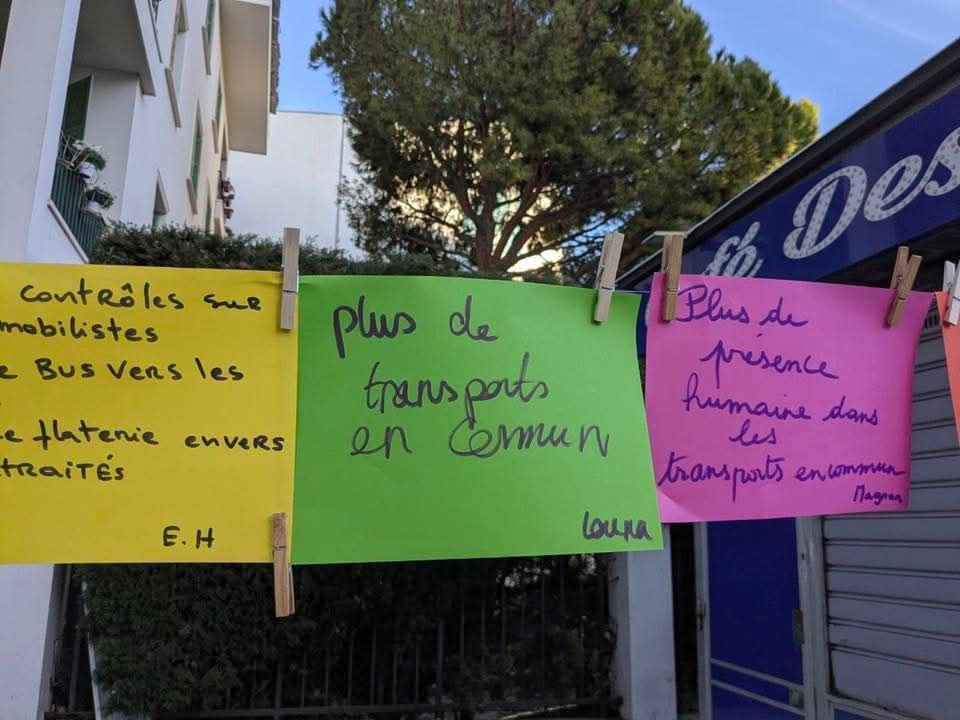 contrôles sur
mobilistes
e Bus vers les
e flaterie envers
traités
E.H
plus de
transports
en commun
Louna
Plus de
présence
humaine dans
les
transports en commun
Magnan
fé Des